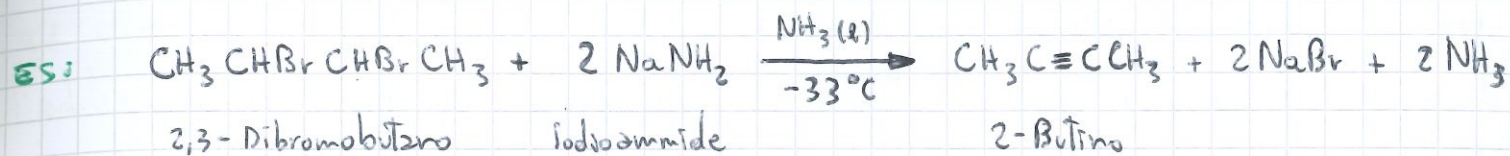 ES: CH₃CHBrCHBrCH₃ + 2 NaNH₂ NH₃(l) -33°C CH₃C≡CCH₃ + 2 NaBr + 2 NH₃
2,3-Dibromobutano iodioammide 2-Butino